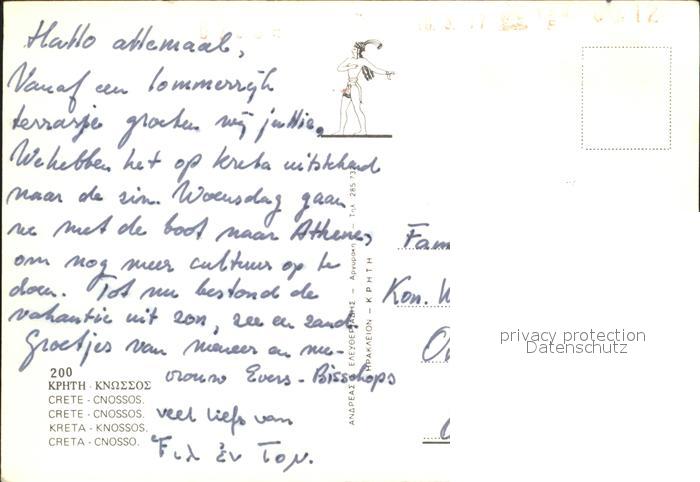 Hallo allemaal,
Vanaf een lommerrijk
terrasje groeten wij jullie.
We hebben het op Kreta uitstekend
naar de zin. Woensdag gaan
we met de boot naar Athene,
om nog meer cultuur op te
doen. Tot nu bestond de
vakantie uit zon, zee en zand.
Groetjes van meneer en me-
vrouw Evers-Bisschops
veel liefs van
Fιλ ἐν Τον.
200
ΚΡΗΤΗ - ΚΝΩΣΣΟΣ
CRETE - CNOSSOS.
CRETE - CNOSSOS.
KRETA - KNOSSOS.
CRETA - CNOSSO.
ΑΝΔΡΕΑΣ ΕΛΕΥΘΕΡΙΑΔΗΣ — Αργυράκη — Τηλ. 285
ΗΡΑΚΛΕΙΟΝ — ΚΡΗΤΗ
Fam
Kon. W
privacy protection
Datenschutz